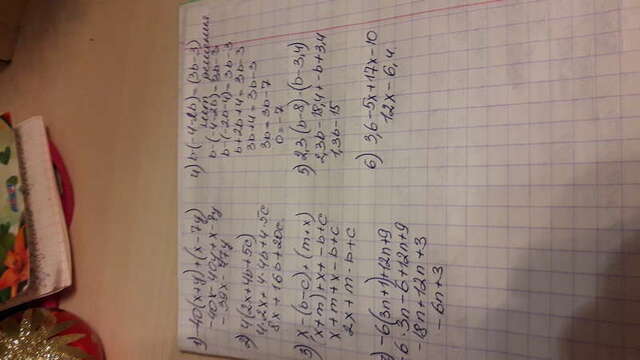 1) -40(x+y)+(x-7y)
-40x-40y+x-7y
-39x-47y
2) 4(2x+4b+5c)
4·2x+4·4b+4·5c
8x+16b+20c.
3) x-(b-c)+(m+x)
(x+m)+x+-b+c
x+m+x-b+c
2x+m-b+c
7) -6(3n+1)+12n+9
-6·3n-6+12n+9
-18n+12n+3
-6n+3
4) b-(-4-2b)=(3b-3)
нет решения
b-(-4-2b)=3b-3
b-(-2b-4)=3b-3
b+2b+4=3b-3
3b+4=3b-3
3b=3b-7
0=-7
5) 2,3(b-8)-(b-3,4)
2,3b-18,4+-b+3,4
1,3b-15
6) 3,6-5x+17x-10
12x-6,4.